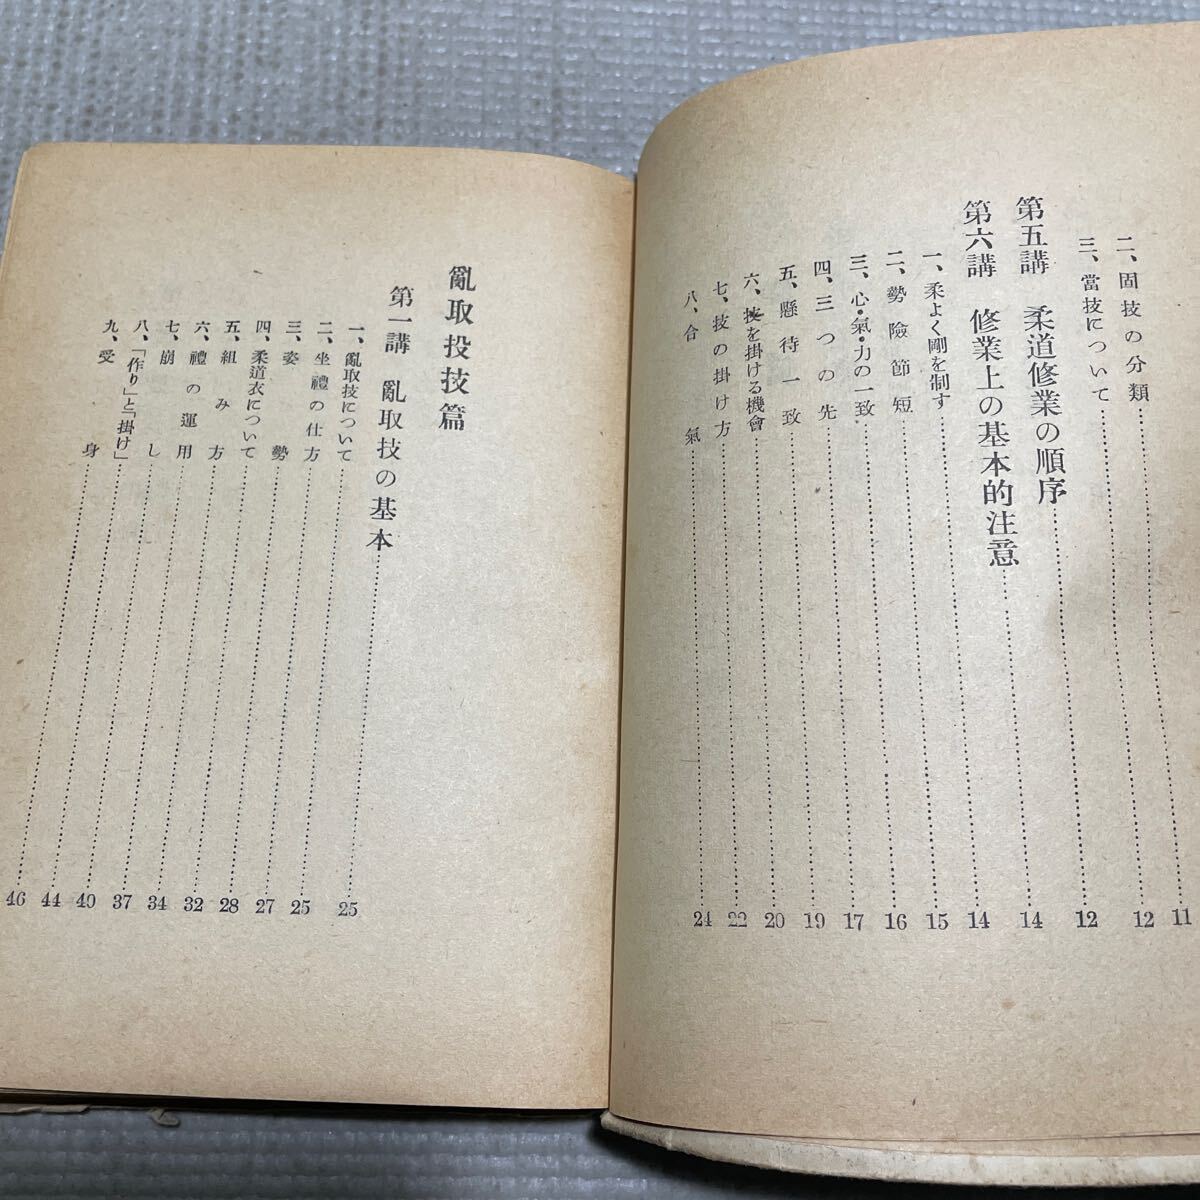 二、固技の分類 11
三、當技について 12
第五講 柔道修業の順序 12
第六講 修業上の基本的注意 14
一、柔よく剛を制す 14
二、勢險節短 15
三、心・氣・力の一致 16
四、三つの先 17
五、懸待一致 19
六、技を掛ける機會 20
七、技の掛け方 22
八、合氣 24
亂取投技篇
第一講 亂取技の基本 25
一、亂取技について 25
二、坐禮の仕方 27
三、姿勢 28
四、柔道衣について 32
五、組み方 34
六、禮の運用 37
七、崩し 40
八、「作り」と「掛け」 44
九、受身 46